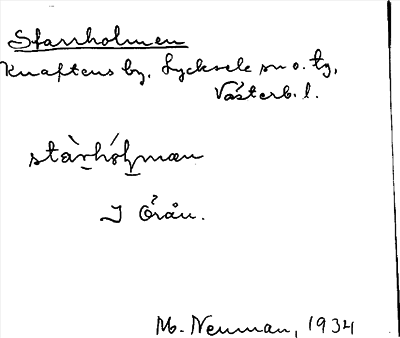 Starrholmen
Knaftens by, Lycksele sn o. tg,
Västerb. l.
stàrhólmæn
I Örån.
M. Neuman, 1934